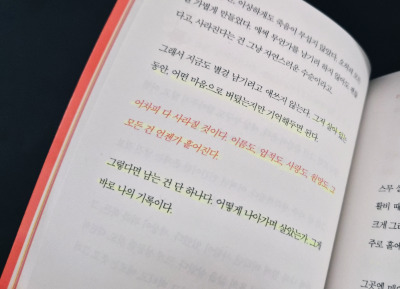 을 가볍게 만들었다. 애써 무언가를 남기려 하지 않아도, 죽음
다고, 사라진다는 건 그냥 자연스러운 수순이라고.
그래서 지금도 별걸 남기려고 애쓰지 않는다. 그저 살아 있는
동안, 어떤 마음으로 버텼는지만 기억해두면 된다.
어차피 다 사라질 것이다. 이름도, 업적도, 사랑도, 원망도 그
모든 건 언젠가 흩어진다.
그렇다면 남는 건 단 하나다. 어떻게 나아가며 살았는가 그게
바로 나의 기록이다.
스무 살
활비 때
크게 그리
주로 흩어
그곳엔